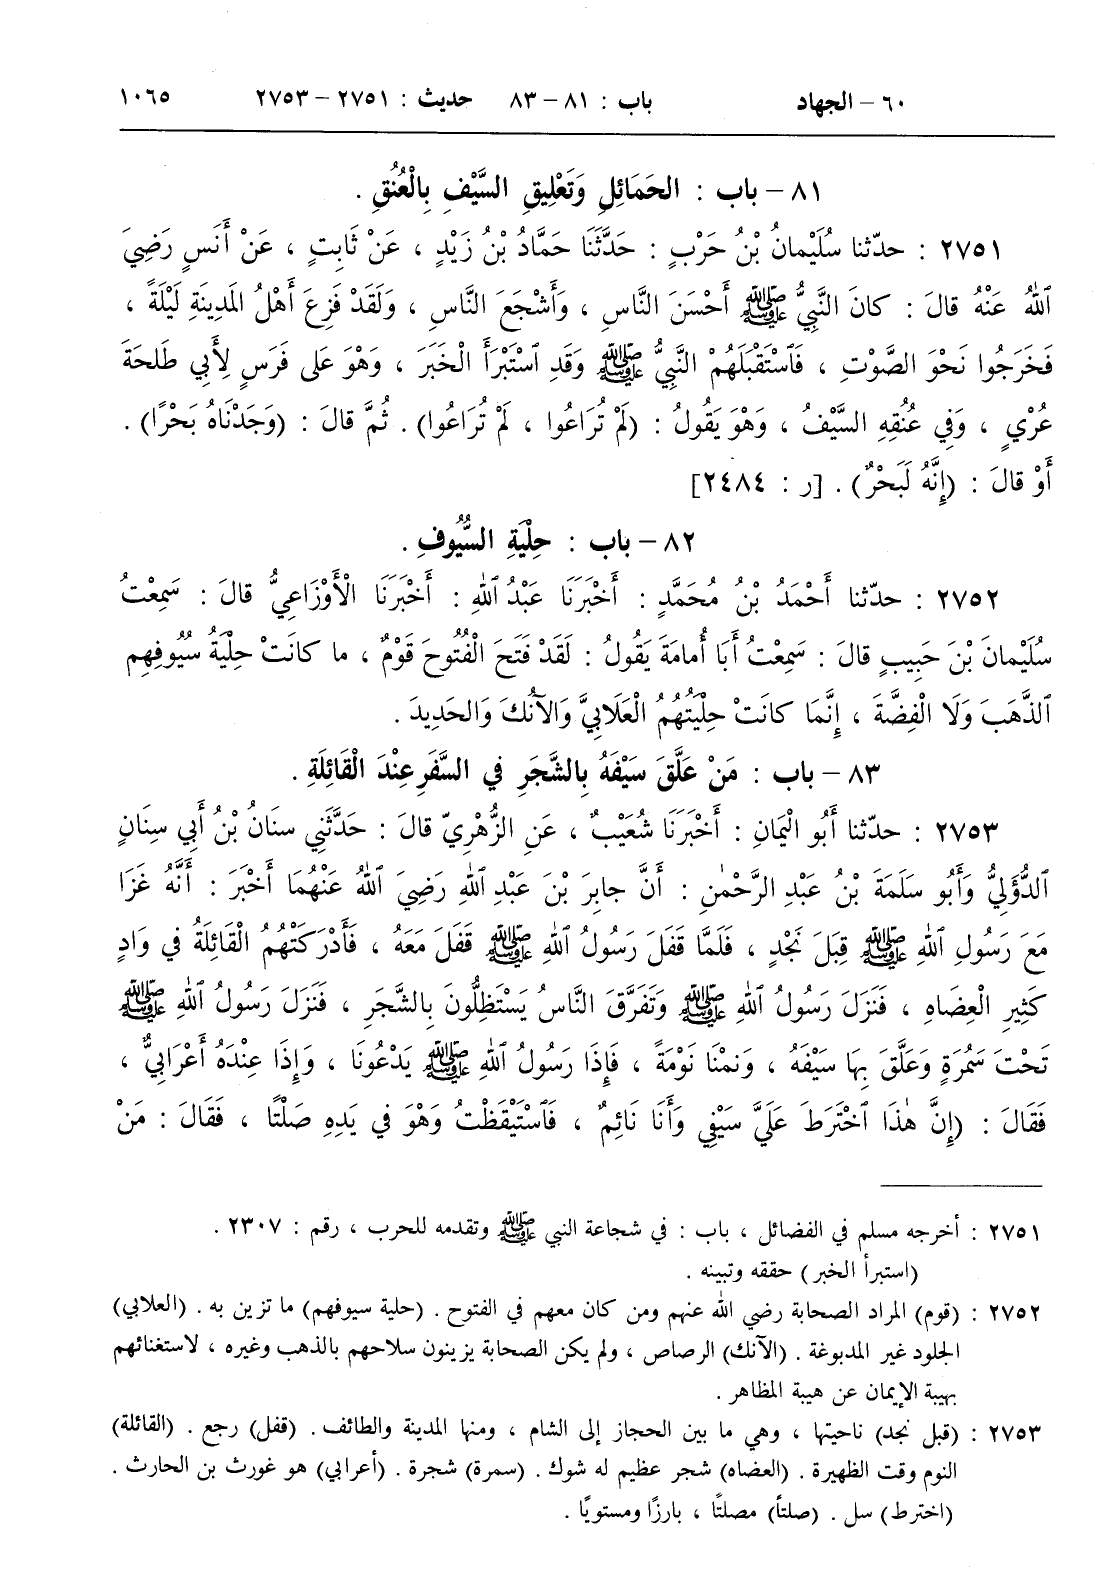 ٦٠ – الجهاد باب : ٨١ – ٨٣ حديث : ٢٧٥١ – ٢٧٥٣ ١٠٦٥
٨١ – باب : الحَمَائِلِ وَتَعْلِيقِ السَّيْفِ بِالْعُنُقِ .
٢٧٥١ : حدّثنا سُلَيْمانُ بْنُ حَرْبٍ : حَدَّثَنَا حَمَّادُ بْنُ زَيْدٍ ، عَنْ ثَابِتٍ ، عَنْ أَنَسٍ رَضِيَ
ٱللهُ عَنْهُ قالَ : كانَ النَّبِيُّ ﷺ أَحْسَنَ النَّاسِ ، وَأَشْجَعَ النَّاسِ ، وَلَقَدْ فَزِعَ أَهْلُ المَدِينَةِ لَيْلَةً ،
فَخَرَجُوا نَحْوَ الصَّوْتِ ، فَٱسْتَقْبَلَهُمْ النَّبِيُّ ﷺ وَقَدِ ٱسْتَبْرَأَ الْخَبَرَ ، وَهْوَ عَلى فَرَسٍ لِأَبِي طَلحَةَ
عُرْيٍ ، وَفِي عُنُقِهِ السَّيْفُ ، وَهْوَ يَقُولُ : (لَمْ تُرَاعُوا ، لَمْ تُرَاعُوا) . ثُمَّ قالَ : (وَجَدْنَاهُ بَحْرًا) .
أَوْ قالَ : (إِنَّهُ لَبَحْرٌ) . [ر : ٢٤٨٤]
٨٢ – باب : حِلْيَةِ السُّيُوفِ .
٢٧٥٢ : حدّثنا أَحْمَدُ بْنُ مُحَمَّدٍ : أَخْبَرَنَا عَبْدُ ٱللهِ : أَخْبَرَنَا الْأَوْزَاعِيُّ قالَ : سَمِعْتُ
سُلَيْمانَ بْنَ حَبِيبٍ قالَ : سَمِعْتُ أَبَا أُمامَةَ يَقُولُ : لَقَدْ فَتَحَ الْفُتُوحَ قَوْمٌ ، ما كانَتْ حِلْيَةُ سُيُوفِهِمِ
ٱلذَّهَبَ وَلَا الْفِضَّةَ ، إِنَّمَا كانَتْ حِلْيَتُهُمُ الْعَلَابِيَّ وَالآنُكَ وَالحَدِيدَ .
٨٣ – باب : مَنْ عَلَّقَ سَيْفَهُ بِالشَّجَرِ في السَّفَرِ عِنْدَ الْقَائِلَةِ .
٢٧٥٣ : حدّثنا أَبُو الْيَمانِ : أَخْبَرَنَا شُعَيْبٌ ، عَنِ الزُّهْرِيِّ قالَ : حَدَّثَنِي سنَانُ بْنُ أَبِي سِنَانٍ
ٱلدُّؤَلِيُّ وَأَبُو سَلَمَةَ بْنُ عَبْدِ الرَّحْمٰنِ : أَنَّ جابِرَ بْنَ عَبْدِ ٱللهِ رَضِيَ ٱللهُ عَنْهُمَا أَخْبَرَ : أَنَّهُ غَزَا
مَعَ رَسُولِ ٱللهِ ﷺ قِبَلَ نَجْدٍ ، فَلَمَّا قَفَلَ رَسُولُ ٱللهِ ﷺ قَفَلَ مَعَهُ ، فَأَدْرَكَتْهُمُ الْقَائِلَةُ في وَادٍ
كَثِيرِ الْعِضَاهِ ، فَنَزَلَ رَسُولُ ٱللهِ ﷺ وَتَفَرَّقَ النَّاسُ يَسْتَظِلُّونَ بِالشَّجَرِ ، فَنَزَلَ رَسُولُ ٱللهِ ﷺ
تَحْتَ سَمُرَةٍ وَعَلَّقَ بِهَا سَيْفَهُ ، وَنمْنَا نَوْمَةً ، فَإِذَا رَسُولُ ٱللهِ ﷺ يَدْعُونَا ، وَإِذَا عِنْدَهُ أَعْرَابِيٌّ ،
فَقَالَ : (إِنَّ هٰذَا ٱخْتَرَطَ عَلَيَّ سَيْفِي وَأَنَا نَائِمٌ ، فَٱسْتَيْقَظْتُ وَهْوَ في يَدِهِ صَلْتًا ، فَقَالَ : مَنْ
٢٧٥١ : أخرجه مسلم في الفضائل ، باب : في شجاعة النبي ﷺ وتقدمه للحرب ، رقم : ٢٣٠٧ .
(استبرأ الخبر) حققه وتبينه .
٢٧٥٢ : (قوم) المراد الصحابة رضي الله عنهم ومن كان معهم في الفتوح . (حلية سيوفهم) ما تزين به . (العلابي)
الجلود غير المدبوغة . (الآنك) الرصاص ، ولم يكن الصحابة يزينون سلاحهم بالذهب وغيره ، لاستغنائهم
بهيبة الإيمان عن هيبة المظاهر .
٢٧٥٣ : (قبل نجد) ناحيتها ، وهي ما بين الحجاز إلى الشام ، ومنها المدينة والطائف . (قفل) رجع . (القائلة)
النوم وقت الظهيرة . (العضاه) شجر عظيم له شوك . (سمرة) شجرة . (أعرابي) هو غورث بن الحارث .
(اخترط) سل . (صلتاً) مصلتًا ، بارزًا ومستويًا .